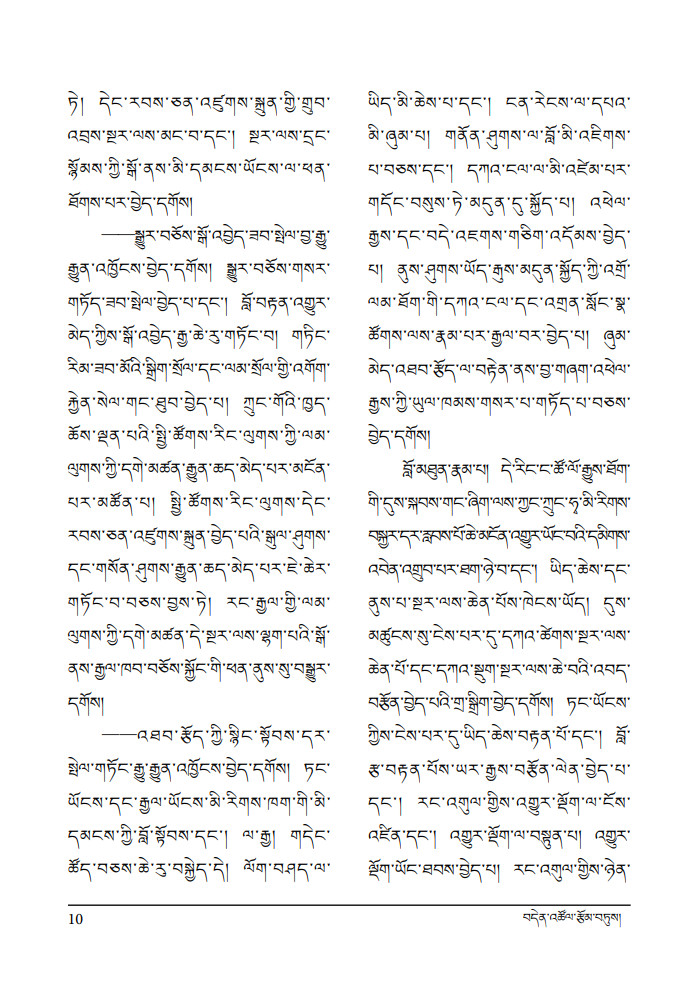 ཏེ། དེང་རབས་ཅན་འཛུགས་སྐྲུན་གྱི་གྲུབ་
འབྲས་སྔར་ལས་མང་བ་དང་། སྔར་ལས་དྲང་
སྙོམས་ཀྱི་སྒོ་ནས་མི་དམངས་ཡོངས་ལ་ཕན་
ཐོགས་པར་བྱེད་དགོས།
——སྒྱུར་བཅོས་སྒོ་འབྱེད་ཟབ་སྤེལ་བྱ་རྒྱུ་
རྒྱུན་འཁྱོངས་བྱེད་དགོས། སྒྱུར་བཅོས་གསར་
གཏོད་ཟབ་སྤེལ་བྱེད་པ་དང་། བློ་བརྟན་འགྱུར་
མེད་ཀྱིས་སྒོ་འབྱེད་རྒྱ་ཆེ་རུ་གཏོང་བ། གཏིང་
རིམ་ཟབ་མོའི་སྒྲིག་སྲོལ་དང་ལམ་སྲོལ་གྱི་འགོག་
རྐྱེན་སེལ་གང་ཐུབ་བྱེད་པ། ཀྲུང་གོའི་ཁྱད་
ཆོས་ལྡན་པའི་སྤྱི་ཚོགས་རིང་ལུགས་ཀྱི་ལམ་
ལུགས་ཀྱི་དགེ་མཚན་རྒྱུན་ཆད་མེད་པར་མངོན་
པར་མཚོན་པ། སྤྱི་ཚོགས་རིང་ལུགས་དེང་
རབས་ཅན་འཛུགས་སྐྲུན་བྱེད་པའི་སྒུལ་ཤུགས་
དང་གསོན་ཤུགས་རྒྱུན་ཆད་མེད་པར་ཇེ་ཆེར་
གཏོང་བ་བཅས་བྱས་ཏེ། རང་རྒྱལ་གྱི་ལམ་
ལུགས་ཀྱི་དགེ་མཚན་དེ་སྔར་ལས་ལྷག་པའི་སྒོ་
ནས་རྒྱལ་ཁབ་བཅོས་སྐྱོང་གི་ཕན་ནུས་སུ་བསྒྱུར་
དགོས།
——འཐབ་རྩོད་ཀྱི་སྙིང་སྟོབས་དར་
སྤེལ་གཏོང་རྒྱུ་རྒྱུན་འཁྱོངས་བྱེད་དགོས། ཏང་
ཡོངས་དང་རྒྱལ་ཡོངས་མི་རིགས་ཁག་གི་མི་
དམངས་ཀྱི་བློ་སྟོབས་དང་། ལ་རྒྱ། གདེང་
ཚོད་བཅས་ཆེ་རུ་བསྐྱེད་དེ། ལོག་བཤད་ལ་
ཡིད་མི་ཆེས་པ་དང་། ངན་རེངས་ལ་དཔའ་
མི་ཞུམ་པ། གནོན་ཤུགས་ལ་བློ་མི་འཇིགས་
པ་བཅས་དང་། དཀའ་ངལ་ལ་མི་འཛེམ་པར་
གདོང་བསུས་ཏེ་མདུན་དུ་སྐྱོད་པ། འཕེལ་
རྒྱས་དང་བདེ་འཇགས་གཅིག་འདོམས་བྱེད་
པ། ནུས་ཤུགས་ཡོད་རྒུས་མདུན་སྐྱོད་ཀྱི་འགྲོ་
ལམ་ཐོག་གི་དཀའ་ངལ་དང་འགྲན་སློང་སྣ་
ཚོགས་ལས་རྣམ་པར་རྒྱལ་བར་བྱེད་པ། ཞུམ་
མེད་འཐབ་རྩོད་ལ་བརྟེན་ནས་བྱ་གཞག་འཕེལ་
རྒྱས་ཀྱི་ཡུལ་ཁམས་གསར་པ་གཏོད་པ་བཅས་
བྱེད་དགོས།
བློ་མཐུན་རྣམ་པ། དེ་རིང་ང་ཚོ་ལོ་རྒྱུས་ཐོག་
གི་དུས་སྐབས་གང་ཞིག་ལས་ཀྱང་ཀྲུང་ཧྭ་མི་རིགས་
བསྐྱར་དར་རླབས་པོ་ཆེ་མངོན་འགྱུར་ཡོང་བའི་དམིགས་
འབེན་འགྲུབ་པར་ཐག་ཉེ་བ་དང་། ཡིད་ཆེས་དང་
ནུས་པ་སྔར་ལས་ཆེན་པོས་ཁེངས་ཡོད། དུས་
མཚུངས་སུ་ངེས་པར་དུ་དཀའ་ཚེགས་སྔར་ལས་
ཆེན་པོ་དང་དཀའ་སྡུག་སྔར་ལས་ཆེ་བའི་འབད་
བརྩོན་བྱེད་པའི་གྲ་སྒྲིག་བྱེད་དགོས། ཏང་ཡོངས་
ཀྱིས་ངེས་པར་དུ་ཡིད་ཆེས་བརྟན་པོ་དང་། བློ་
རྩ་བརྟན་པོས་ཡར་རྒྱས་བརྩོན་ལེན་བྱེད་པ་
དང་། རང་འགུལ་གྱིས་འགྱུར་ལྡོག་ལ་ངོས་
འཛིན་དང་། འགྱུར་ལྡོག་ལ་བསྟུན་པ། འགྱུར་
ལྡོག་ཡོང་ཐབས་བྱེད་པ། རང་འགུལ་གྱིས་ཉེན་
10
བདེན་འཚོལ་རྩོམ་བཏུས།